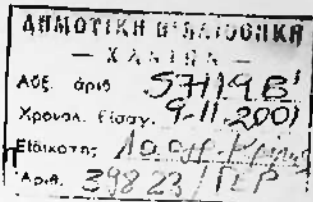 ΔΗΜΟΤΙΚΗ ΒΙΒΛΙΟΘΗΚΗ
— ΧΑΝΙΩΝ —
Αὔξ. ἀριθ 57119 Β'
Χρονολ. Εἰσαγ. 9-11-2001
Εἰδικότης
Ἀριθ. 39823/ΓΕΡ